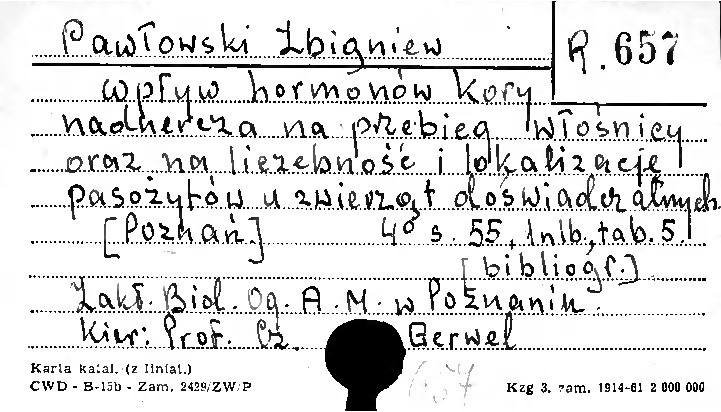 Pawłowski Zbigniew
R. 657
wpływ hormonów kory
nadnercza na przebieg włośnicy
oraz na liczebność i lokalizację
pasożytów u zwierząt doświadczalnych
[Poznań.] 4° s. 55, 1nlb., tab. 5.
[bibliogr.]
Zakł. Biol. Og. A. M. w Poznaniu.
Kier: Prof. Cz. Gerwel
657
Karta katal. (z liniat.)
CWD - B-15b - Zam. 2429/ZW/P
Kzg 3. zam. 1914-61 2 000 000